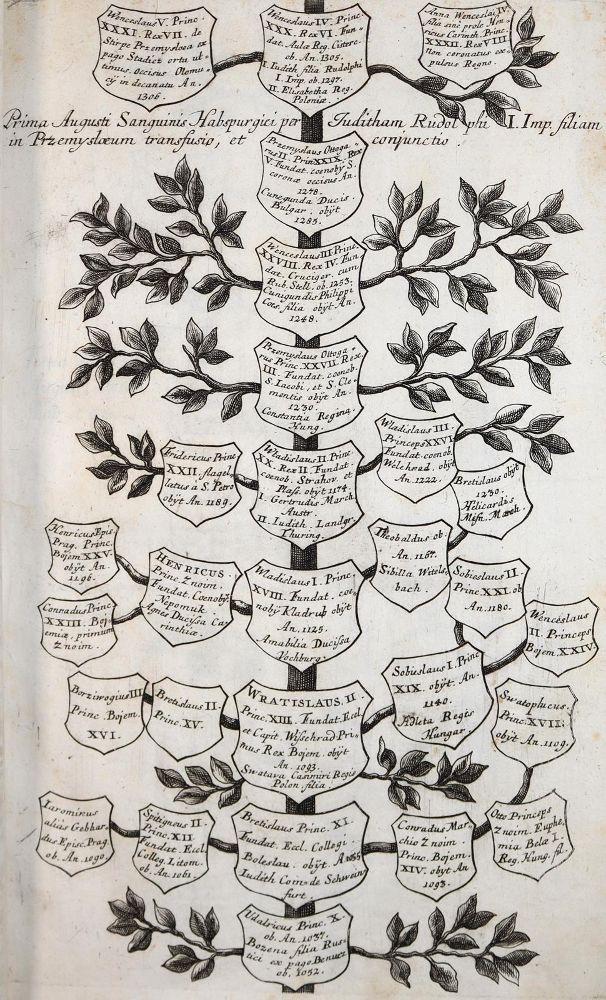 Wenceslaus V. Princ.
XXXI. Rex VII. de
Stirpe Przemysloea ex
pago Stadicz ortu ul-
timus. Occisus Olomu-
cij in decanatu An.
1306.
Wenceslaus IV. Princ.
XXX. Rex VI. Fun-
dat. Aulæ Reg. Cisterc.
ob. An. 1305.
I. Iudith filia Rudolphi
I. Imp. ob. 1297.
II. Elisabetha Reg.
Poloniæ.
Anna Wenceslai IV.
filia sine prole Hen-
ricus Carinth. Princ.
XXXII. Rex VIII
non coronatus ex-
pulsus Regno.
Prima Augusti Sanguinis Habspurgici per Juditham Rudolphi I. Imp. filiam
in Przemyslæum transfusio, et conjunctio.
Przemyslaus Ottoga-
rus II. Prin XXIX. Rex
V. Fundat. coenoby S.
coronæ occisus An.
1278.
Cunegunda Ducis.
Bulgar. obÿt
1285.
Wenceslaus III Princ.
XXVIII. Rex IV. Fun-
dat. Cruciger. cum
Rub. Stell. ob. 1253.
Cunigundis Philippi
Cæs. filia obÿt An.
1248.
Przemyslaus Ottoga-
rus Princ. XXVII. Rex
III. Fundat. coenob.
S. Iacobi, et S. Cle-
mentis obÿt An.
1230.
Constantia Regina
Hung.
Wladislaus III.
Princeps XXVI.
Fundat. coenob.
Welehrad. obÿt
An. 1222.
Fridericus Princ
XXII. flagel-
latus à S. Petro
obÿt An. 1189.
Wladislaus II. Princ.
XX. Rex II. Fundat.
coenob. Strahov. et
Plass. obÿt 1174
I. Gertrudis March.
Austr.
II. Iudith. Landgr.
Thuring.
Bretislaus obÿt
1230.
Helicardis
Misn. March.
Henricus Epis
Prag. Princ.
Bojem. XXV.
obÿt An.
1196.
HENRICUS
Princ. Znoim.
Fundat. Coenobÿ
Nepomuk.
Agnes Ducissa Ca-
rinthiæ.
Wladislaus I. Princ.
XVIII. Fundat. coe-
nobÿ Kladrub obÿt
An. 1125.
Amabilia Ducissa
Vochburg.
Theobaldus ob.
An. 1167.
Sibilla Witels-
bach.
Sobieslaus II
Princ. XXI. ob.
An. 1180.
Conradus Princ.
XXIII. Boj-
emiæ, primum
Znoim.
Wenceslaus
II. Princeps
Bojem. XXIV.
Borziwogius III
Princ. Bojem.
XVI.
Bretislaus II.
Princ. XV.
WRATISLAUS. II.
Princ. XIII. Fundat. Eccl.
et Capit. Wissehrad Pri-
mus Rex Bojem. obÿt
An. 1093.
Swatava Casimiri Regis
Polon. filia.
Sobieslaus I. Princ.
XIX. obÿt. An.
1140.
Adleta Regis
Hungar.
Swatoplucus.
Princ. XVII.
obÿt An. 1109.
Iaromirus
aliàs Gebhar-
dus Episc. Prag.
ob. An. 1090.
Spitigneus II.
Princ. XII
Fundat. Eccl.
Colleg. Litom.
ob. An. 1061.
Bretislaus Princ. XI.
Fundat. Eccl. Collegi.
Boleslau. obÿt. A 1055
Iudith Com de Schwein
furt.
Conradus Mar-
chio Znoim.
Princ. Bojem.
XIV. obÿt An
1093.
Otto Princeps
Znoim. Euphe-
mia Belæ I.
Reg. Hung. fil.
Udalricus Princ. X.
ob. An. 1037.
Bozena filia Rus-
tici ex pago
ob. 1052.